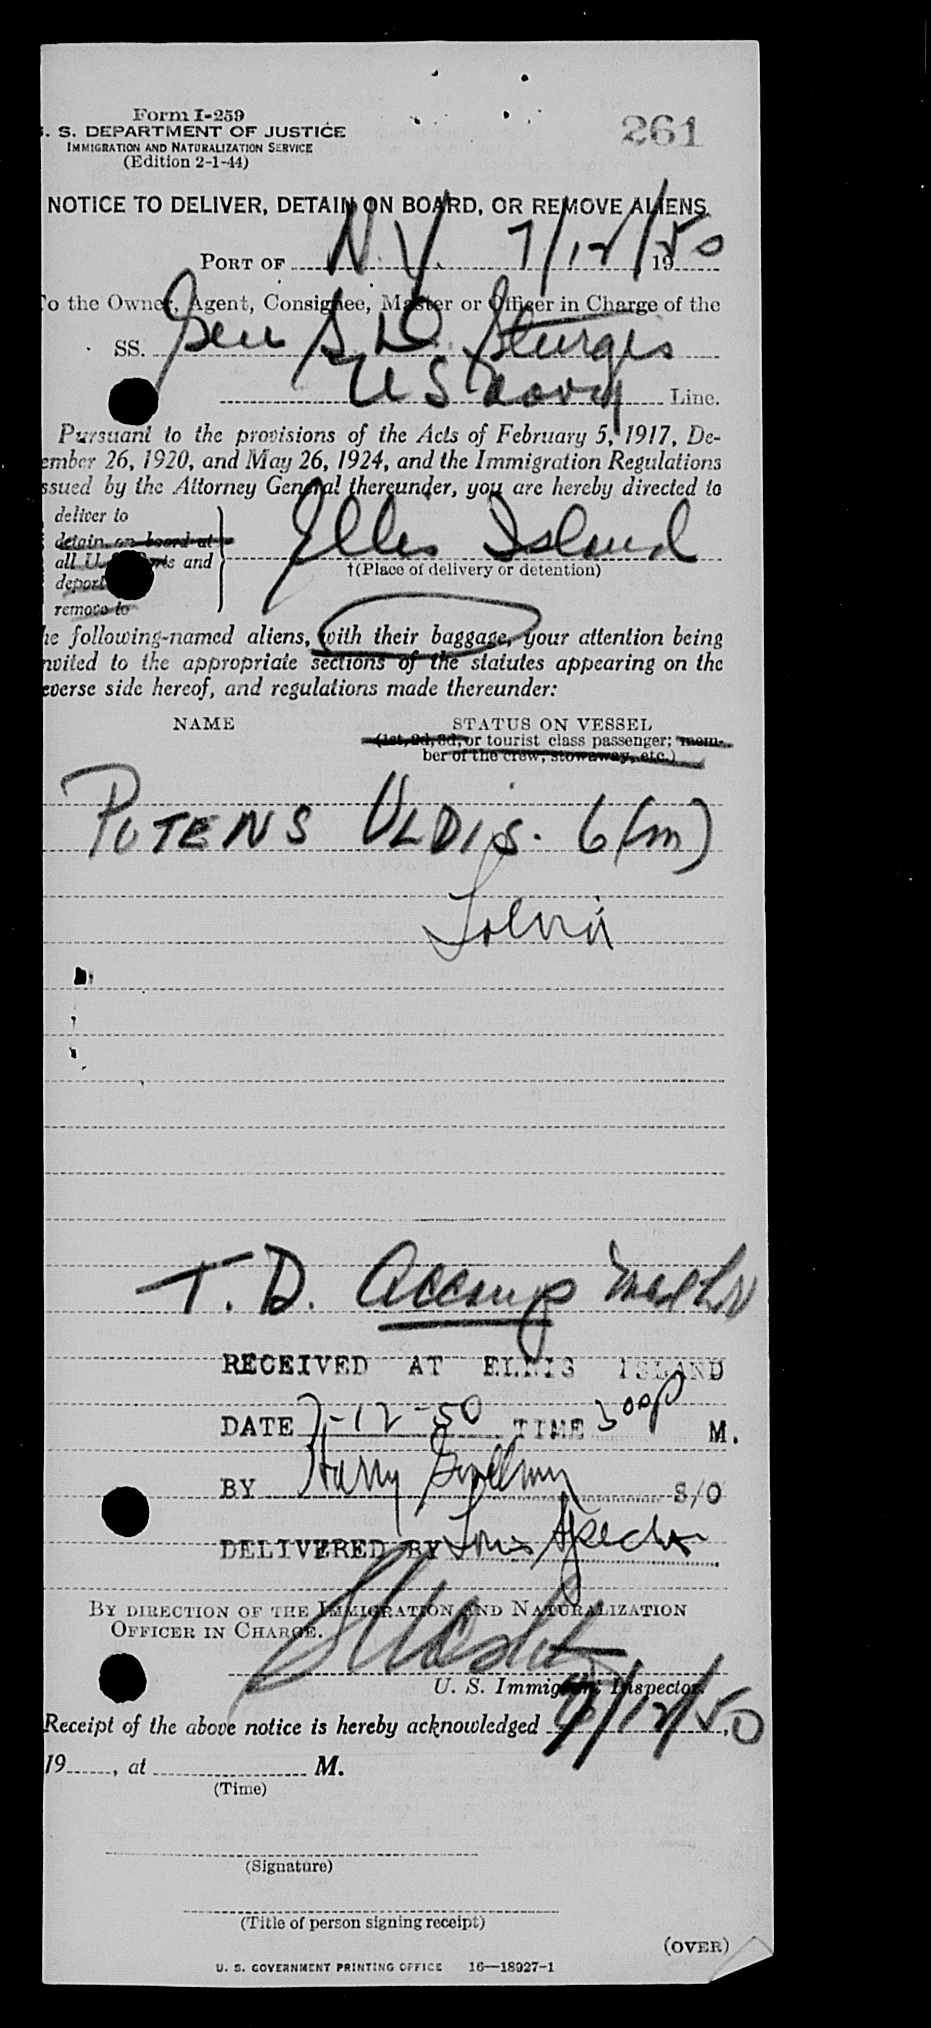 Form I-259
. S. DEPARTMENT OF JUSTICE
IMMIGRATION AND NATURALIZATION SERVICE
(Edition 2-1-44)
261
NOTICE TO DELIVER, DETAIN ON BOARD, OR REMOVE ALIENS
PORT OF N. Y. 7/12/50 19
To the Owner, Agent, Consignee, Master or Officer in Charge of the
SS. Gen S. D. Sturgis
US Navy Line.
Pursuant to the provisions of the Acts of February 5, 1917, De-
ember 26, 1920, and May 26, 1924, and the Immigration Regulations
ssued by the Attorney General thereunder, you are hereby directed to
deliver to
detain on board at
all U. S. Ports and
deport
remove to
Ellis Island
†(Place of delivery or detention)
he following-named aliens, with their baggage, your attention being
nvited to the appropriate sections of the statutes appearing on the
everse side hereof, and regulations made thereunder:
NAME STATUS ON VESSEL
(1st, 2d, 3d, or tourist class passenger; mem-
ber of the crew, stowaway, etc.)
PUTENS ULDIS. 6 (m)
T. D. Accomp
RECEIVED AT ELLIS ISLAND
DATE 7-12-50 TIME 3 00 P M.
BY Harry S/O
DELIVERED BY Louis
BY DIRECTION OF THE IMMIGRATION AND NATURALIZATION
OFFICER IN CHARGE.
U. S. Immigrant Inspector.
Receipt of the above notice is hereby acknowledged 7/12/50,
19, at M.
(Time)
(Signature)
(Title of person signing receipt)
(OVER)
U. S. GOVERNMENT PRINTING OFFICE 16—18927-1